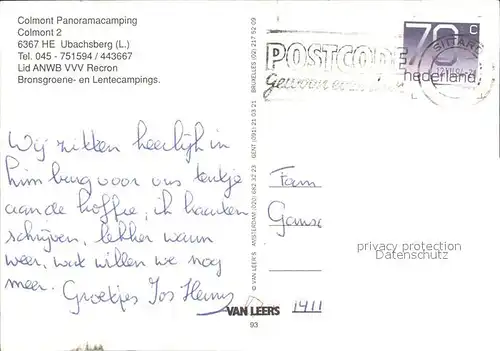 Colmont Panoramacamping
Colmont 2
6367 HE Ubachsberg (L.)
Tel. 045 - 751594 / 443667
Lid ANWB VVV Recron
Bronsgroene- en Lentecampings.
POSTCODE
gewoon even
SITTARD
70 c
nederland
Wij zitten heerlijk in
Limburg voor ons tentje
aan de koffie, ik kaarten
schrijven, lekker warm
weer, wat willen we nog
meer. Groetjes Jos Henny
© VAN LEER'S AMSTERDAM (020) 682 32 23 GENT (091) 21 03 21 BRUXELLES (02) 217 52 09
Fam
privacy protection
VAN LEERS
93
1411